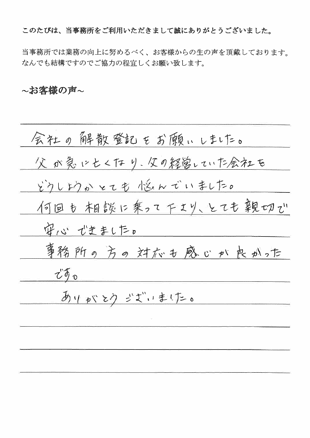 このたびは、当事務所をご利用いただきまして誠にありがとうございました。
当事務所では業務の向上に努めるべく、お客様からの生の声を頂戴しております。
なんでも結構ですのでご協力の程宜しくお願い致します。
~お客様の声~
会社の解散登記をお願いしました。
父が急に亡くなり、父の経営していた会社を
どうしようかとても悩んでいました。
何回も相談に乗って下さり、とても親切で
安心できました。
事務所の方の対応も感じが良かった
です。
ありがとうございました。